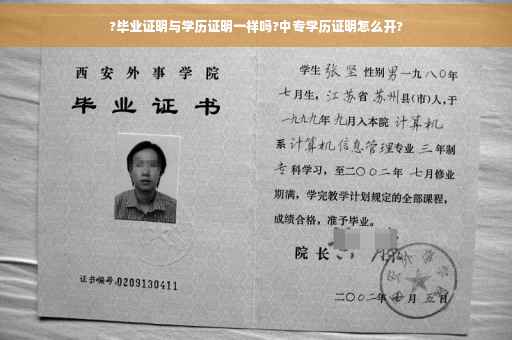 ?毕业证明与学历证明一样吗?中专学历证明怎么开?
西安外事学院
毕业证书
证书编号:0209130411
学生 张坚 性别 男 一九八〇年
七月生，江苏省 苏州县(市)人，于
一九九九年 九月入本院 计算机
系 计算机信息管理专业 三 年制
专 科学习，至二〇〇二年 七月修业
期满，学完教学计划规定的全部课程，
成绩合格，准予毕业。
院长
二〇〇二年 七 月 五 日